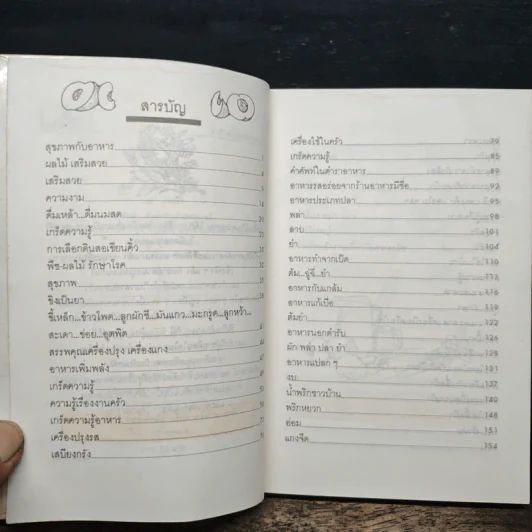 สารบัญ
สุขภาพกับอาหาร 1
ผลไม้ เสริมสวย
เสริมสวย
ความงาม
ดื่มเหล้า...ดื่มนมสด
เกร็ดความรู้
การเลือกดินสอเขียนคิ้ว
พืช-ผลไม้ รักษาโรค
สุขภาพ
ขิงเป็นยา
ขี้เหล็ก...ข้าวโพด...ลูกผักชี...มันแกว...มะกรูด...ลูกหว้า...
สะเดา...ข่อย...อุตพิต
สรรพคุณเครื่องปรุง เครื่องแกง
อาหารเพิ่มพลัง
เกร็ดความรู้
ความรู้เรื่องงานครัว
เกร็ดความรู้อาหาร
เครื่องปรุงรส
เสบียงกรัง
เครื่องใช้ในครัว 79
เกร็ดความรู้ 85
คำศัพท์ในตำราอาหาร 89
อาหารรสอร่อยจากร้านอาหารมีชื่อ 92
อาหารประเภทปลา 95
พล่า 98
ลาบ 101
ยำ 104
อาหารทำจากเป็ด
ต้ม...อู๋ฉี่...ยำ
อาหารกับแกล้ม
อาหารแก้เบื่อ
ส้มยำ 122
อาหารนอกตำรับ 126
ผัก พล่า ปลา ยำ 127
อาหารแปลก ๆ 131
งบ 137
น้ำพริกชาวบ้าน 140
พริกหยวก 148
อ่อม 151
แกงจืด 154